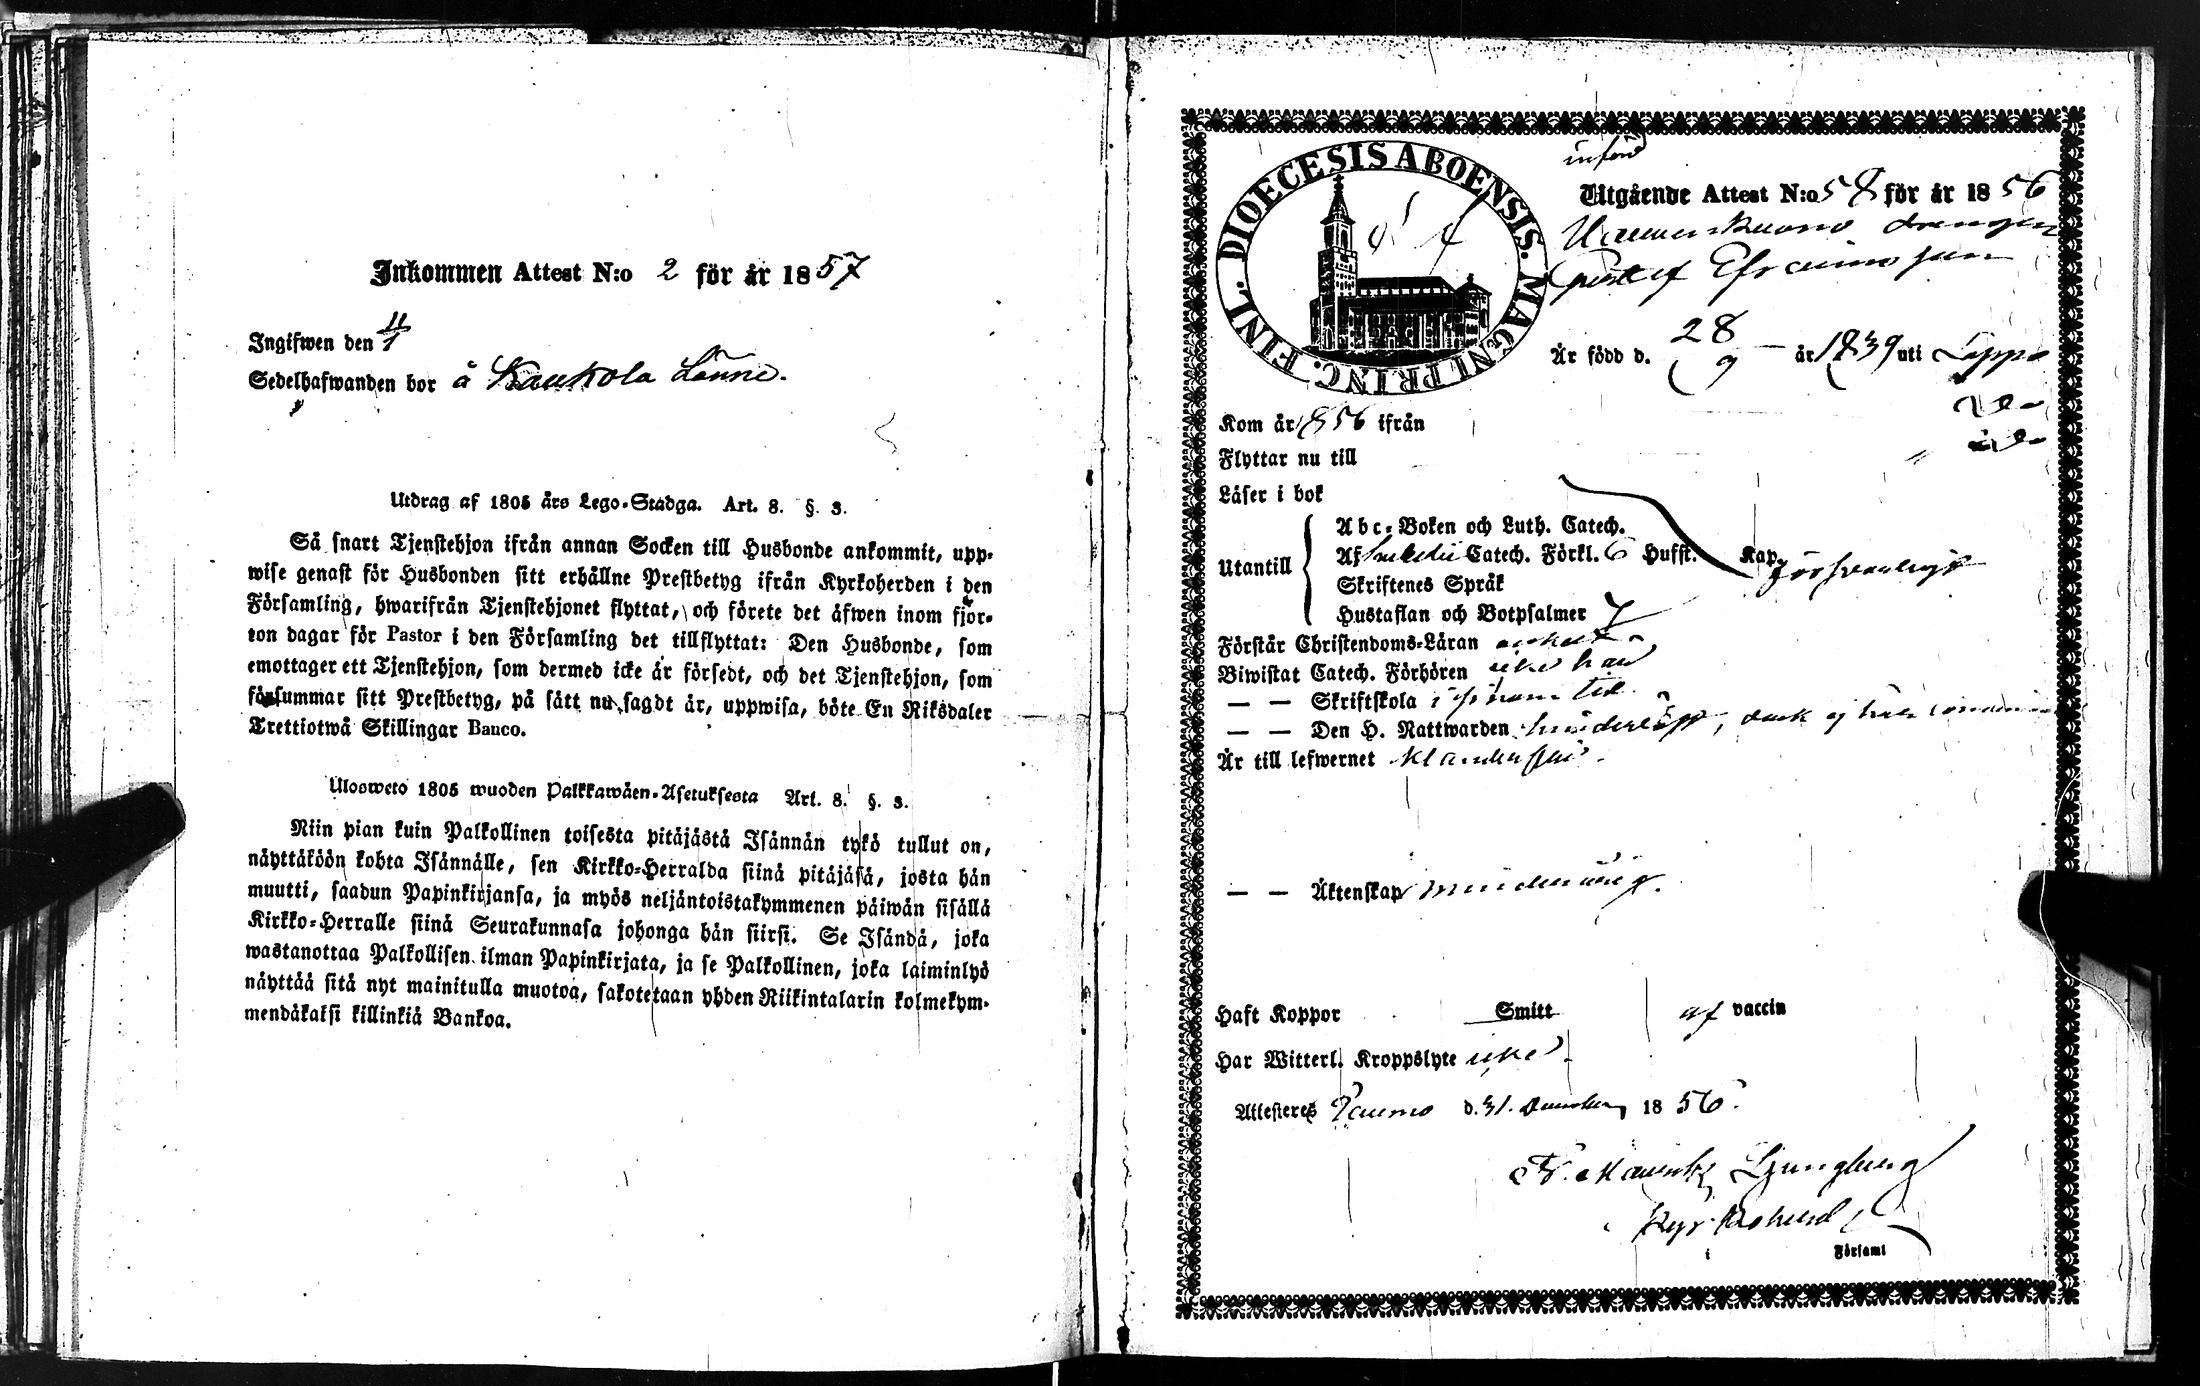 Inkommen Attest N:o 2 för år 1857
Ingifwen den 11/1
Sedelhafwanden bor å Kaukola Länne.
Utdrag af 1805 års Lego-Stadga. Art. 8. §. 3.
Så snart Tjenstehjon ifrån annan Socken till Husbonde ankommit, upp-
wise genast för Husbonden sitt erhållne Prestbetyg ifrån Kyrkoherden i den
Församling, hwarifrån Tjenstehjonet flyttat, och förete det äfwen inom fjor-
ton dagar för Pastor i den Församling det tillflyttat: Den Husbonde, som
emottager ett Tjenstehjon, som dermed icke är försedt, och det Tjenstehjon, som
försummar sitt Prestbetyg, på sätt nu sagdt är, uppwisa, böte En Riksdaler
Trettiotwå Skillingar Banco.
Ulosweto 1805 wuoden Palkkawäen-Asetuksesta Art. 8. §. 3.
Niin pian kuin Palkollinen toisesta pitäjästä Isännän tykö tullut on,
näyttäköön kohta Isännälle, sen Kirkko-Herralda siinä pitäjäsä, josta hän
muutti, saadun Papinkirjansa, ja myös neljäntoistakymmenen päiwän sisällä
Kirkko-Herralle siinä Seurakunnasa johonga hän siirsi. Se Isändä, joka
wastanottaa Palkollisen ilman Papinkirjata, ja se Palkollinen, joka laiminlyö
näyttää sitä nyt mainitulla muotoa, sakotetaan yhden Riikintalarin kolmekym-
mendäkaksi killinkiä Bankoa.
införd
DIOECESIS ABOENSIS. MAGNI PRINC. FINL.
Utgående Attest N:o 58 för år 1856
drengen
Gustaf Efraimsson
Är född d. 28/9 år 1839 uti Lappo
Kom år 1856 ifrån
Flyttar nu till
Läser i bok
Abc-Boken och Luth. Catech.
Utantill Af Catech. Förkl. 6 Hufst. Kap. försvarligt
Skriftenes Språk
Hustaflan och Botpsalmer 7
Förstår Christendoms-Läran enkelt
Biwistat Catech. Förhören icke här
— — Skriftskola i sinom tid
— — Den H. Nattwarden hinderlöst, dock ej här
Är till lefwernet klanderfri.
— — Äktenskap minderårig.
Haft Koppor Smitt af vaccin
Har Witterl. Kroppslyte icke.
Attesteres Raumo d. 31. December 1856.
Fr. Mauritz Ljungberg
i Församl